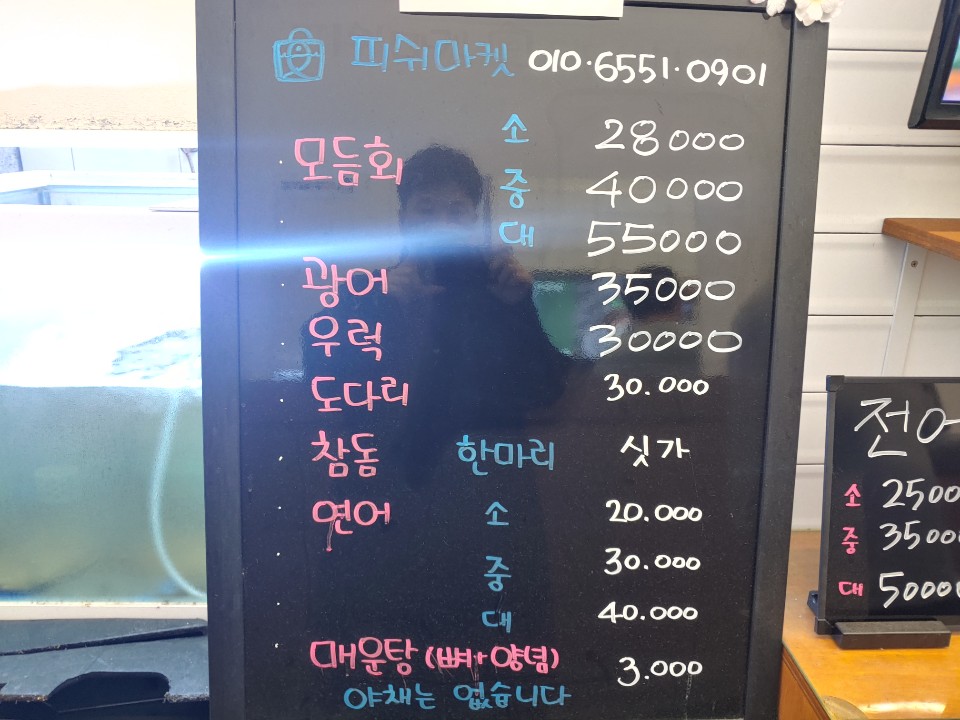 피쉬마켓 010·6551·0901
모듬회 소 28000
중 40000
대 55000
광어 35000
우럭 30000
도다리 30.000
참돔 한마리 싯가
연어 소 20.000
중 30.000
대 40.000
매운탕 (뼈+양념) 3.000
야채는 없습니다
전어
소 2500
중 3500
대 50000